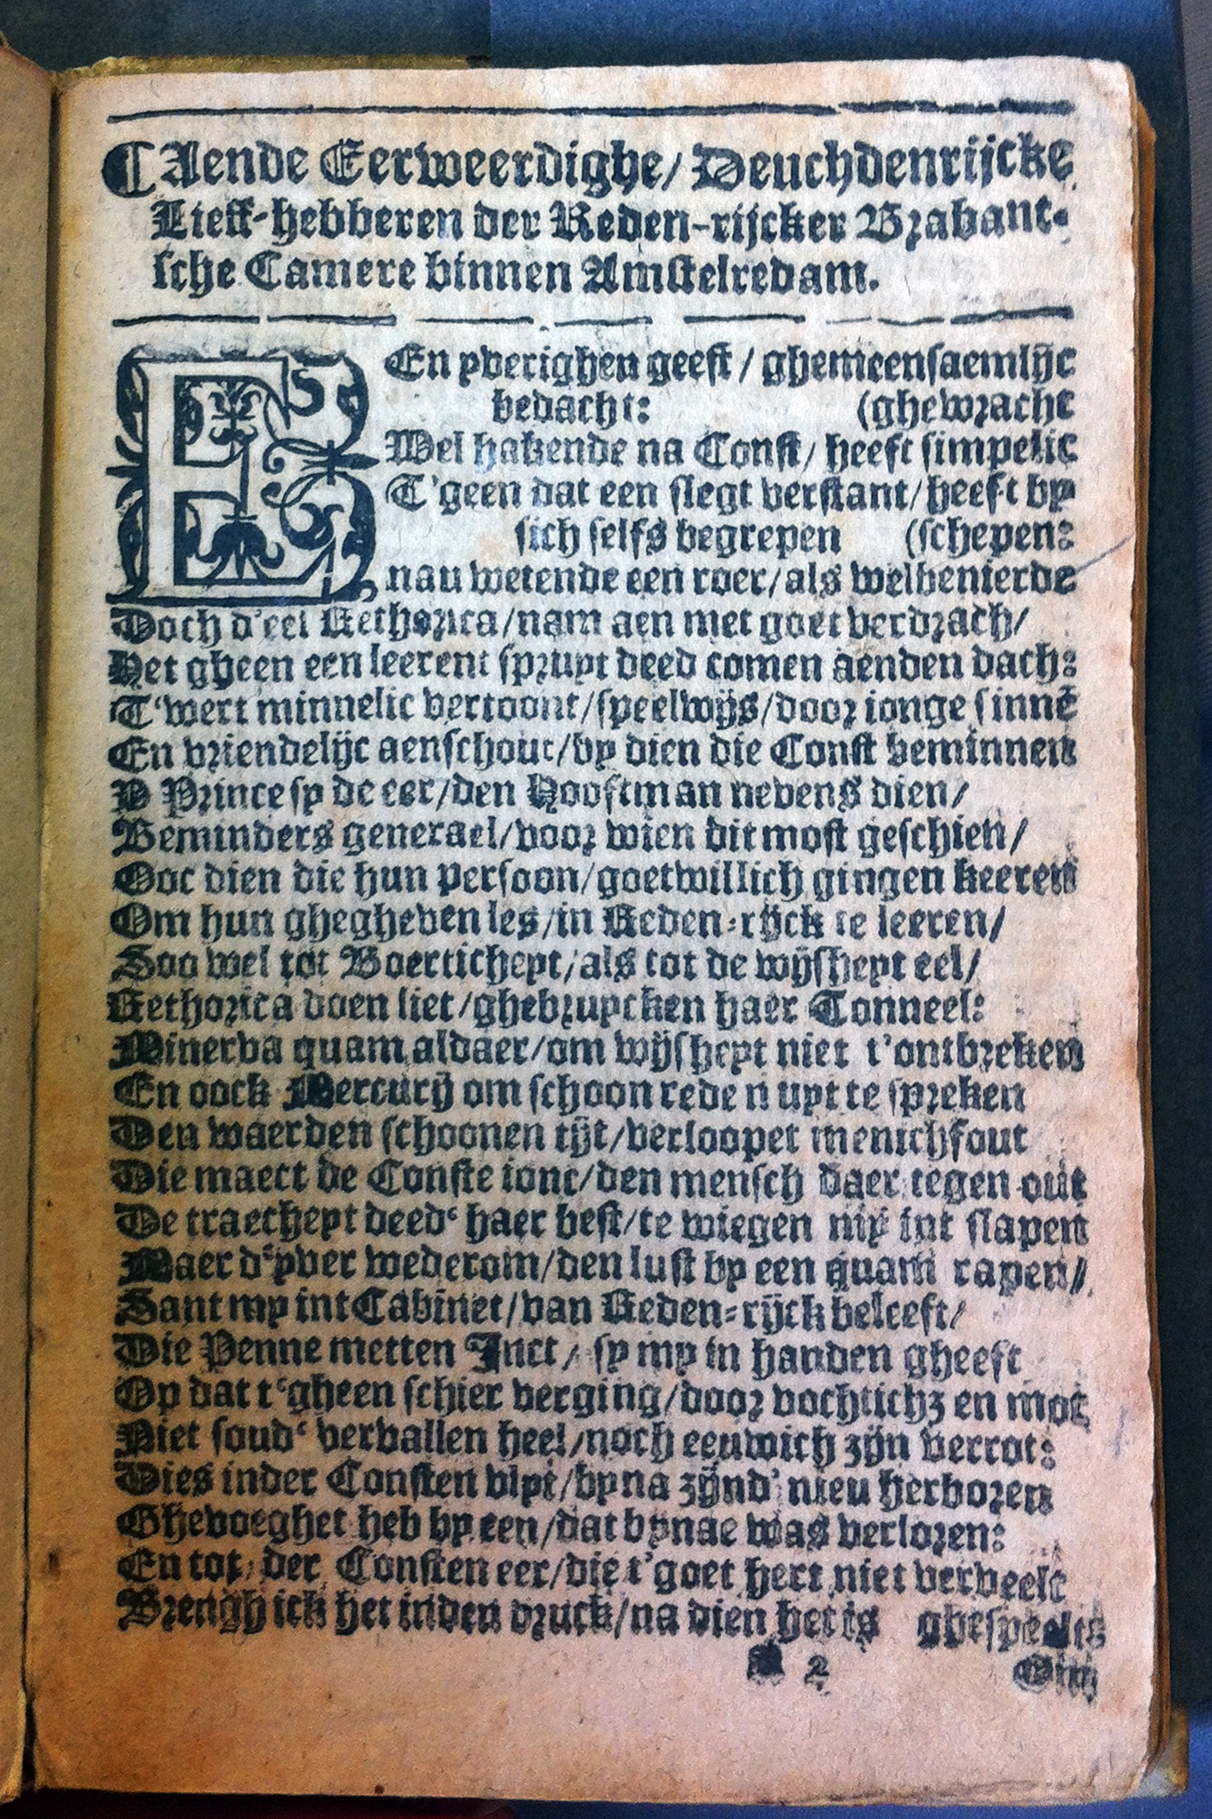 Aende Eerweerdighe/ Deuchdenrijcke
Lieff-hebberen der Reden-rijcker Brabant-
sche Camere binnen Amstelredam.
EEn yverighen geest / ghemeensaemlijc
bedacht: (ghewracht
Wel hakende na Const/ heeft simpelic
T'geen dat een slegt verstant/heeft by
sich selfs begrepen (schepen:
nau wetende een roer/als welbenierde
Doch d'eel Rethorica/nam aen met goet verdrach/
Het gheen een leerent spruyt deed comen aenden dach:
T'wert minnelic vertoont/speelwijs/door ionge sinnē
En vriendelijc aenschout/by dien die Const beminnen
D Prince sy de eer/den Hooftman nevens dien/
Beminders generael/voor wien dit most geschien/
Ooc dien die hun persoon/goetwillich gingen keeren
Om hun ghegheven les/in Reden-rijck te leeren/
Soo wel tot Boerticheyt/als tot de wijsheyt eel/
Rethorica doen liet/ghebruycken haer Tonneel:
Minerva quam aldaer/om wijsheyt niet t'ontbreken
En oock Mercurij om schoon rede n uyt te spreken
Den waerden schoonen tijt/verloopet menichfout
Die maect de Conste ionc/den mensch daer tegen out
De traecheyt deed' haer best/te wiegen my int slapen
Maer d'yver wederom/den lust by een quam rapen/
Sant my int Cabinet/van Reden-rijck beleeft/
Die Penne metten Inct/ sy my in handen gheeft
Op dat t'gheen schier verging/door vochtichz en mot
Niet soud' vervallen heel/noch eeuwich zijn verrot:
Dies inder Consten vlyt/byna zijnd' nieu herboren
Ghevoeghet heb by een/dat bynae was verloren:
En tot der Consten eer/die t'goet hert niet verveelt
Brengh ick het inden druck/na dien het is ghespeelt
A 2